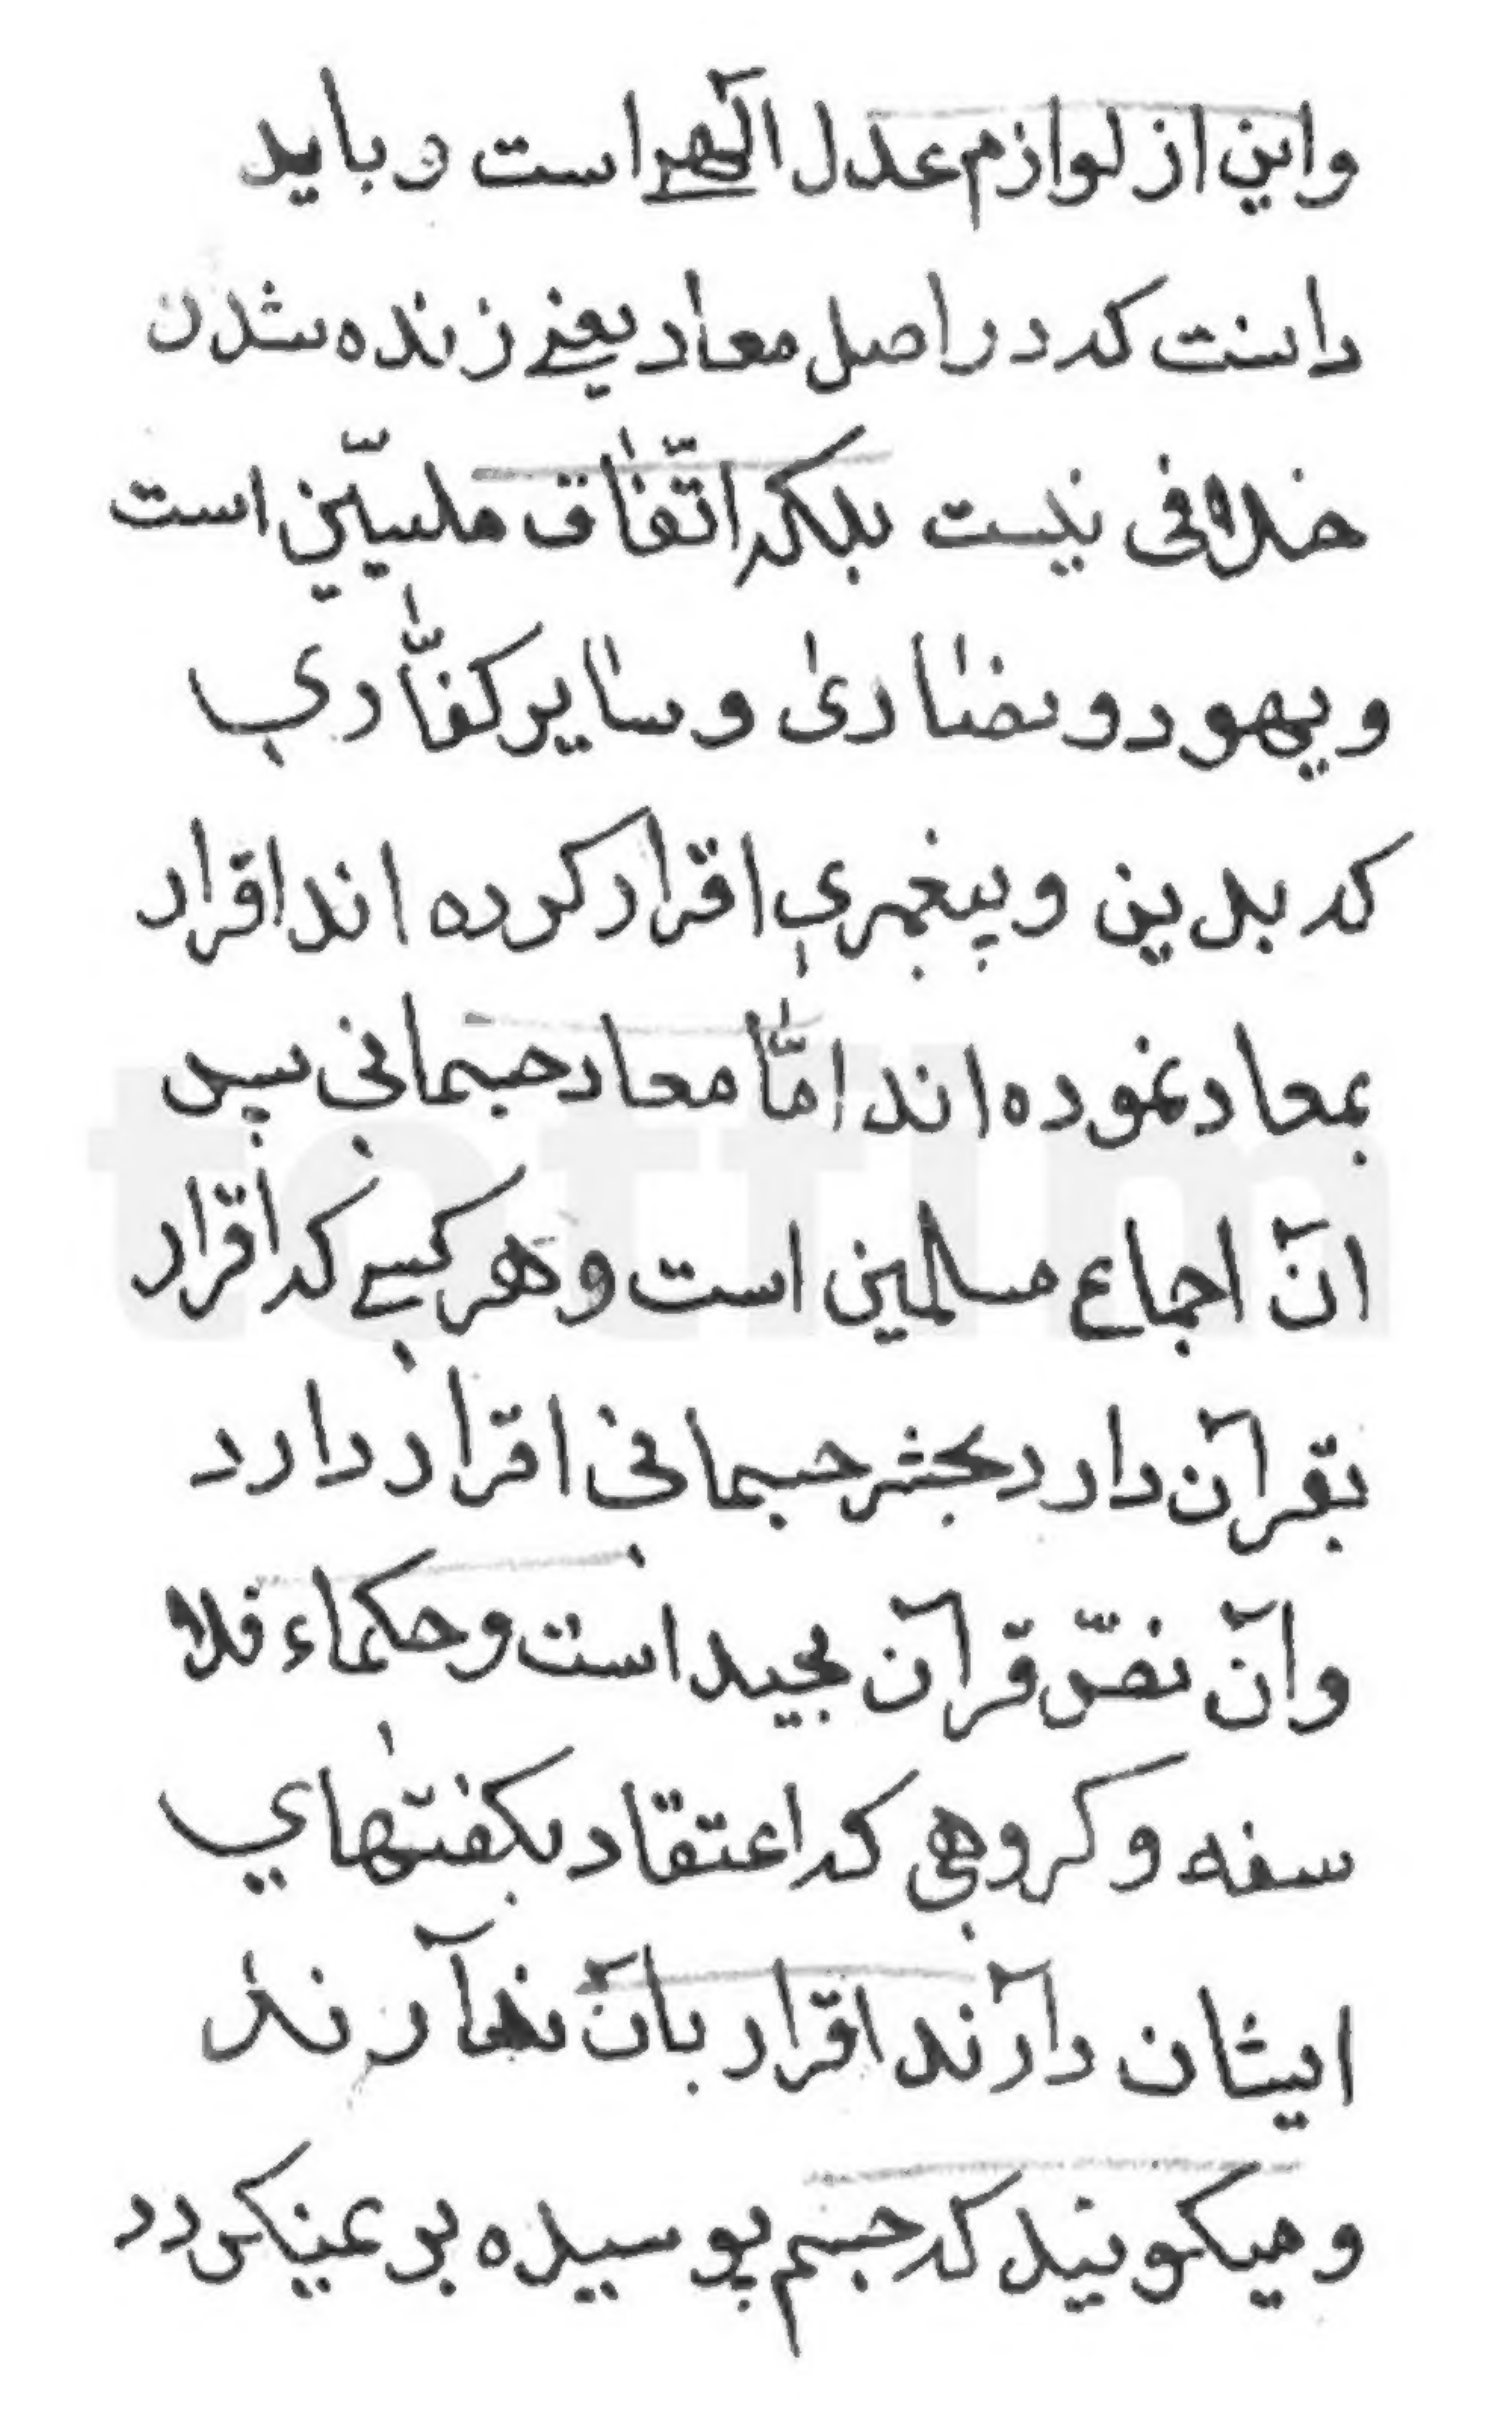 واین از لوازم عدل آلهی است و باید
دانست که در اصل معاد یعنی زنده شدن
خلافی نیست بلکه اتّفاق ملییّن است
و یهود و نصاریٰ و سایر کفّاری
که بدین و پیغمبری اقرار کرده اند اقرار
بمعاد نموده اند امّا معاد جسمانی پس
انّ اجماع مسلمین است و هر کسی که اقرار
بقرآن دارد بحشر جسمانی اقرار دارد
وآن نصّ قرآن مجید است و حکماء فلا
سفه و کروهی که اعتقاد بکفتهای
ایشان دارند اقرار بآن ندارند
و میکویند که جسم پوسیده بر نمیکردد
totfim